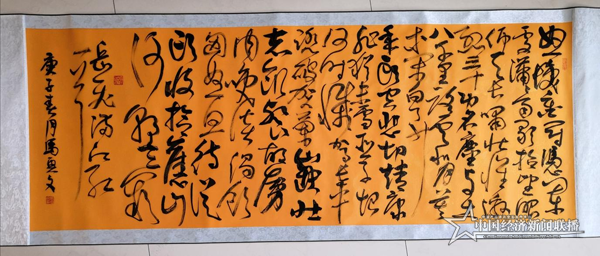 怒髮衝冠憑闌
處瀟瀟雨歇抬望眼
仰天長嘯壯懷激
烈三十功名塵與土
八千里路雲和月莫
等閒白了少
年頭空悲切靖康
恥猶未雪臣子恨
何時滅駕長車
踏破賀蘭山缺壯
志飢餐胡虜
肉笑談渴飲
匈奴血待從
頭收拾舊山
河朝天闕
岳飛滿江紅
庚子春月馬
中国经济新闻联播